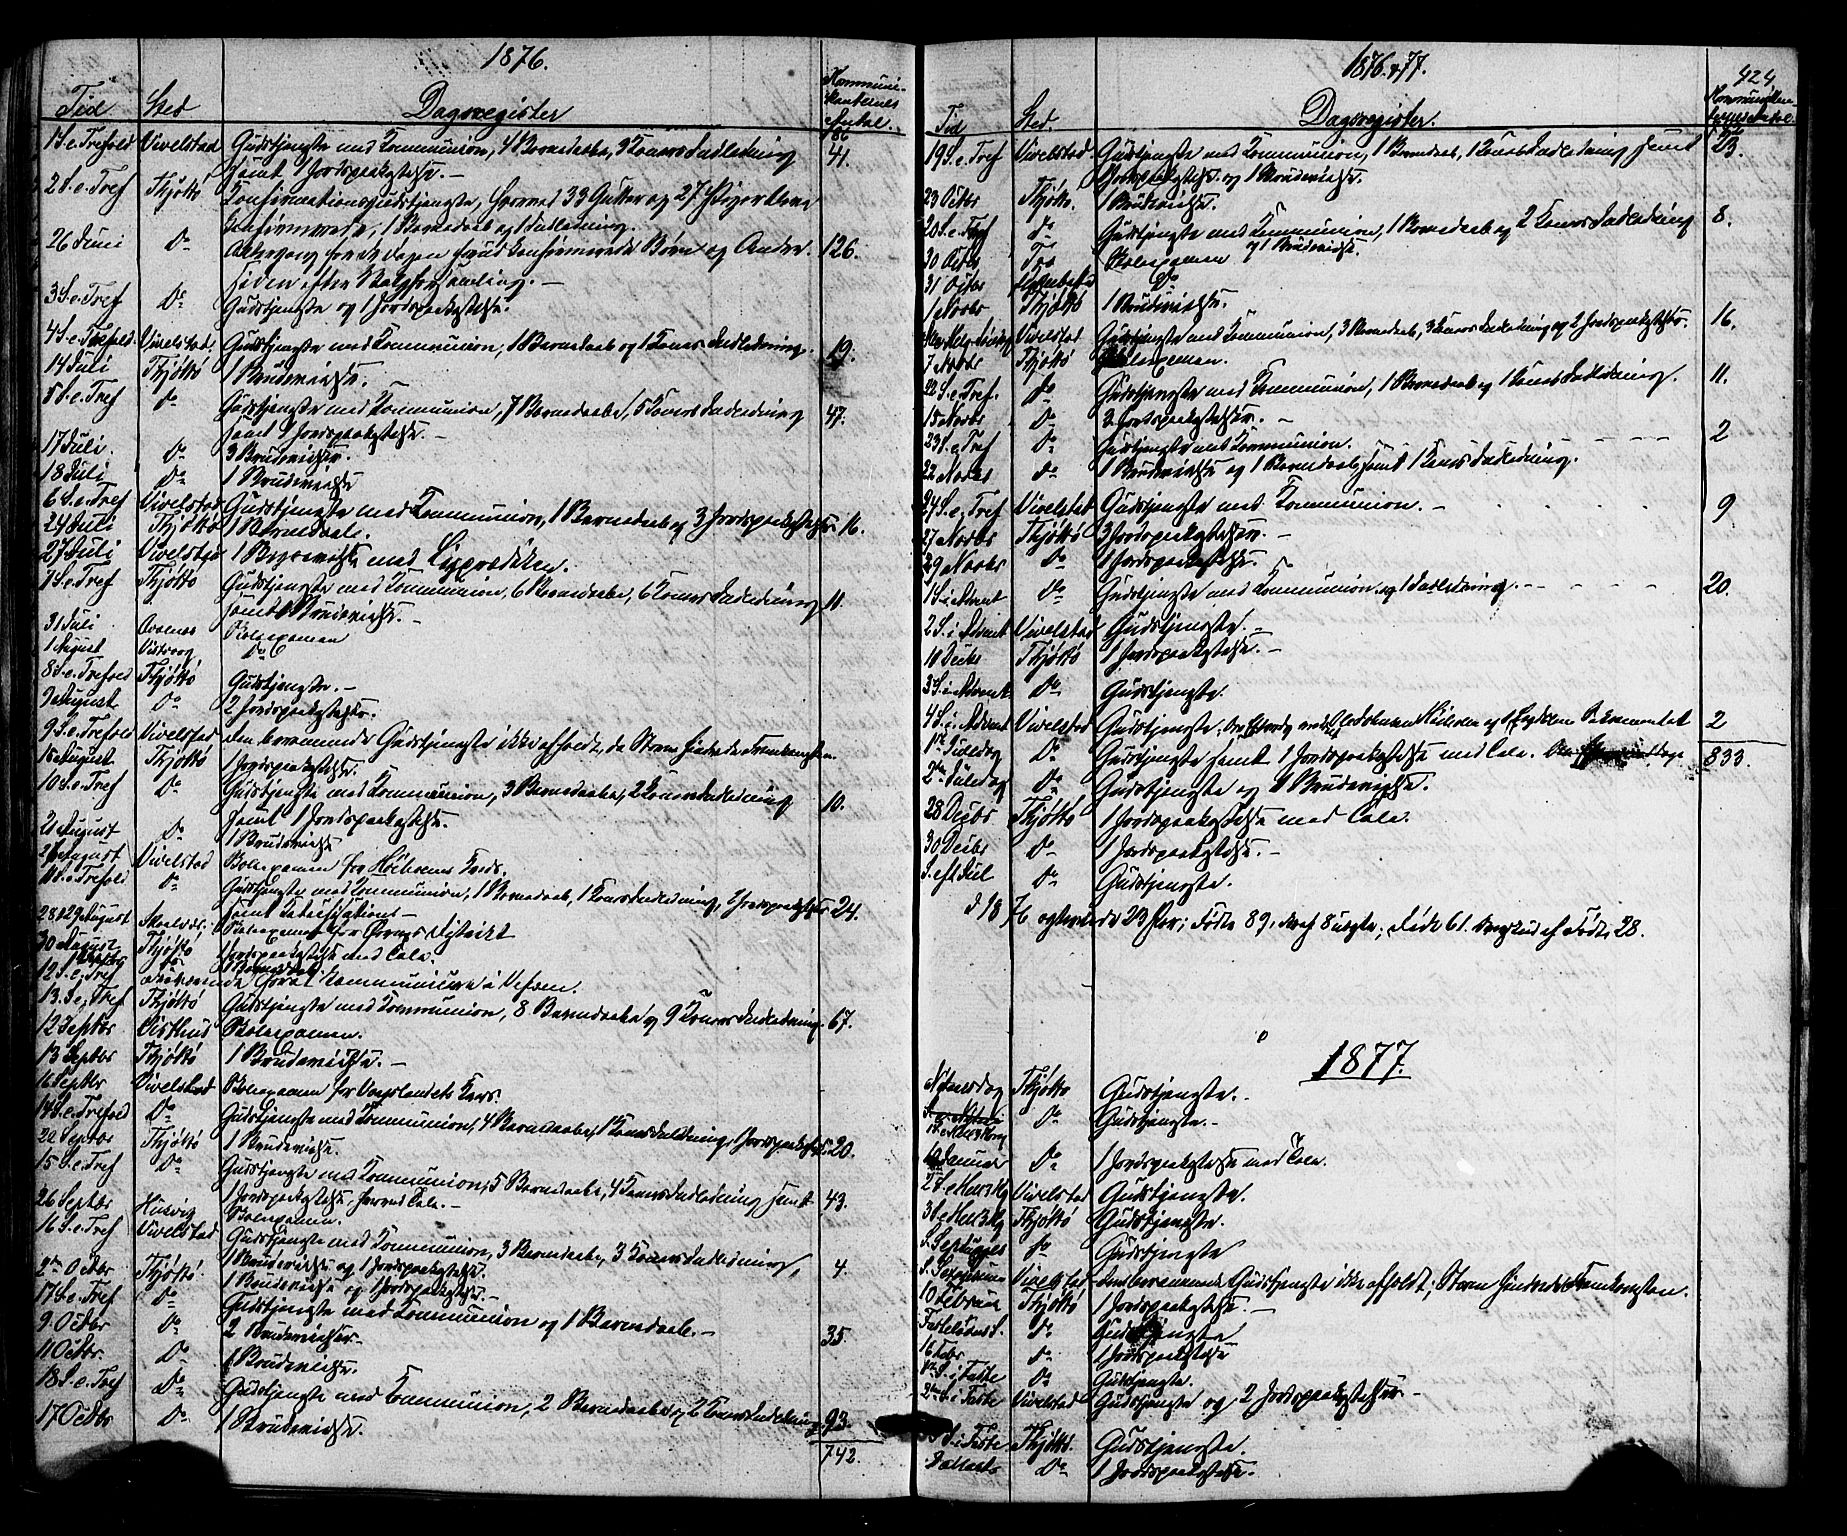 1876.
Tid Sted Dagsregister Kommuni-
kanternes
Antal.
186
1 S.e.Trefold Vivelstad Gudstjeneste med Kommunion, 4 Barnedaab, 3 Koners Indledning 41.
samt 1 Jordspaakastelse. –
2 S.e.Tref Thjøttø Konfirmationsgudstjeneste, hvorved 33 Gutter og 27 Piger bleve
konfirmerede, 1 Barnedaab og 1 Indledning.
26 Juni Do Altergang for de Dagen forud konfirmerede Børn og Andre. 126.
siden efter Valgforsamling. –
3 S.e.Tref Do Gudstjeneste og 1 Jordspaakastelse.
4 S.e.Trefold. Vivelstad Gudstjeneste med Kommunion, 1 Barnedaab og 1 Koners Indledning. 19.
14 Juli Thjøttø 1 Brudevielse.
5 S.e.Tref Do Gudstjeneste med Kommunion, 7 Barnedaabe, 5 Koners Indledning 47.
samt 1 Jordspaakastelse. –
17 Juli. Do 3 Brudevielser.
18 Juli Do 1 Brudevielse
6 S.e.Tref Vivelstad Gudstjeneste med Kommunion, 1 Barnedaab og 3 Jordspaakastelser 16.
24 Juli Thjøttø 1 Barnedaab.
27 Juli Vivelstad 1 med Ligprædiken.
7 S.e.Tref Thjøttø Gudstjeneste med Kommunion, 6 Barnedaabe, 6 Koners Indledning 11.
samt Brudevielse. –
31 Juli Skoleexamen
1 August Do
8 S.e.Trefold Thjøttø Gudstjeneste. –
9 August Do 2 Jordspaakastelser.
9 S.e.Trefold Vivelstad Den berammede Gudstjeneste ikke afholdt, da Storm hindrede Fremkomsten.
15 August Thjøttø 1 Jordspaakastelse.
10 S.e.Tref Do Gudstjeneste med Kommunion, 3 Barnedaabe, 2 Koners Indledning 10.
samt 1 Jordspaakastelse.
21 August Do 1 Brudevielse
August Vivelstad Skoleexamen for Høiholmens Kreds.
11 S.e.Trefold Do Gudstjeneste med Kommunion, 1 Barnedaab, 1 Koners Indledning, Jordspaakastelse 24.
samt Katechisation –
28 & 29 August Skoleexamen for District
30 August Thjøttø 1 Jordspaakastelse med Tale.
1 Barnedaab.
12 S.e.Tref i Vefsen.
13. S.e.Tref Thjøttø Gudstjeneste med Kommunion, 8 Barnedaabe og 9 Koners Indledning. 67.
12 Septbr Visthus Skoleexamen.
13 Septbr Thjøttø 1 Brudevielse. –
16 Septbr Vivelstad Skoleexamen for Kreds.
14 S.e.Trefold Do Gudstjeneste med Kommunion, 4 Barnedaabe, 1 Koners Indledning, Jordspaakastelse 20.
20 Septbr Thjøttø 1 Brudevielse.
15 S.e.Tref Do Gudstjeneste med Kommunion, 5 Barnedaabe, 4 Koners Indledning samt 43.
1 Jordspaakastelse hvorved Tale. –
26 Septbr Husvig Skoleexamen.
16 S.e.Tref Vivelstad Gudstjeneste med Kommunion, 3 Barnedaabe, 3 Koners Indledning, 4.
1 Brudevielse og 1 Jordspaakastelse.
2den Octbr Thjøttø. 1 Brudevielse og 1 Jordspaakastelse. –
17 S.e.Tref Do Gudstjeneste med Kommunion og 1 Barnedaab. – 35.
9. Octbr Do 2 Brudevielser.
11 Octbr. Do 1 Brudevielse.
18 S.e.Tref Do Gudstjeneste med Kommunion, 2 Barnedaabe og 2 Koners Indledning 93.
17 Octbr Do 1 Brudevielse.
742.
1876 & 77.
424
Tid Sted. Dagsregister. Kommunikan-
ternes Antal.
742
19 S.e.Tref Vivelstad Gudstjeneste med Kommunion, 1 Barnedaab, 1 Koners Indledning samt 23.
Jordspaakastelse og 1 Brudevielse.
23 Octbr Thjøttø. 1 Brudevielse.
20 S.e.Tref Do Gudstjeneste med Kommunion, 1 Barnedaab og 2 Koners Indledning 8.
og 1 Brudevielse.
30 Octbr Skoleexamen
31 Octbr Do
1 Novbr Thjøttø 1 Brudevielse.
Alle Helg. Søndag Vivelstad Gudstjeneste med Kommunion, 3 Barnedaab, 3 Koners Indledning og 2 Jordspaakastelser. 16.
7 Novbr Thjøttø Skoleexamen.
22 S.e.Tref. Do Gudstjeneste med Kommunion, 1 Barnedaab og 1 Koners Indledning. 11.
15 Novbr Do 3 Jordspaakastelser. –
23 S.e.Tref Do Gudstjeneste med Kommunion. 2
22 Novbr Do 1 Brudevielse og 1 Barnedaab samt 1 Koners Indledning.
24 S.e.Tref Vivelstad Gudstjeneste med Kommunion. – 9
27 Novbr Thjøttø 3 Jordspaakastelser. –
29 Novbr Do 1 Jordspaakastelse.
1 S.i.Advent Do Gudstjeneste med Kommunion og 1 Indledning. 20.
2 S.i.Advent Vivelstad Gudstjeneste. –
11 Decbr Thjøttø 1 Jordspaakastelse. –
3 S.i.Advent Do Gudstjeneste.
4 S.i.Advent Vivelstad Gudstjeneste. Sakramentet 2
1ste Juledag Do Gudstjeneste samt 1 Jordspaakastelse med Tale. 833.
2den Juledag Do Gudstjeneste og 1 Brudevielse.
28 Decbr Thjøttø 1 Jordspaakastelse med Tale.
30 Decbr Do 1 Jordspaakastelse. –
S. eft. Jul Do Gudstjeneste.
I 1876 egteviede 23 Par; Fødte 89, deraf 8 uegte; Døde 61. Overskud af Fødte 28.
1877.
Nytaarsdag Thjøttø Gudstjeneste. –
Do Gudstjeneste. –
Januar Do 1 Jordspaakastelse med Tale.
2 S.e.Hell3Kg Vivelstad Gudstjeneste.
3 S.e.Hell3Kg Thjøttø Gudstjeneste.
S. Septuages Do Gudstjeneste
S. Sexagesima Vivelstad Den berammede Gudstjeneste ikke afholdt, Storm hindrede Fremkomsten.
10 Februar Thjøttø 1 Jordspaakastelse. –
Fastelavns S. Do Gudstjeneste
16 Febr Do 1 Jordspaakastelse
1ste S.i Faste Do Gudstjeneste.
2den S.i Faste Vivelstad Gudstjeneste og 2 Jordspaakastelser –
S.i Faste Thjøttø. Gudstjeneste.
Do 1 Jordspaakastelse.